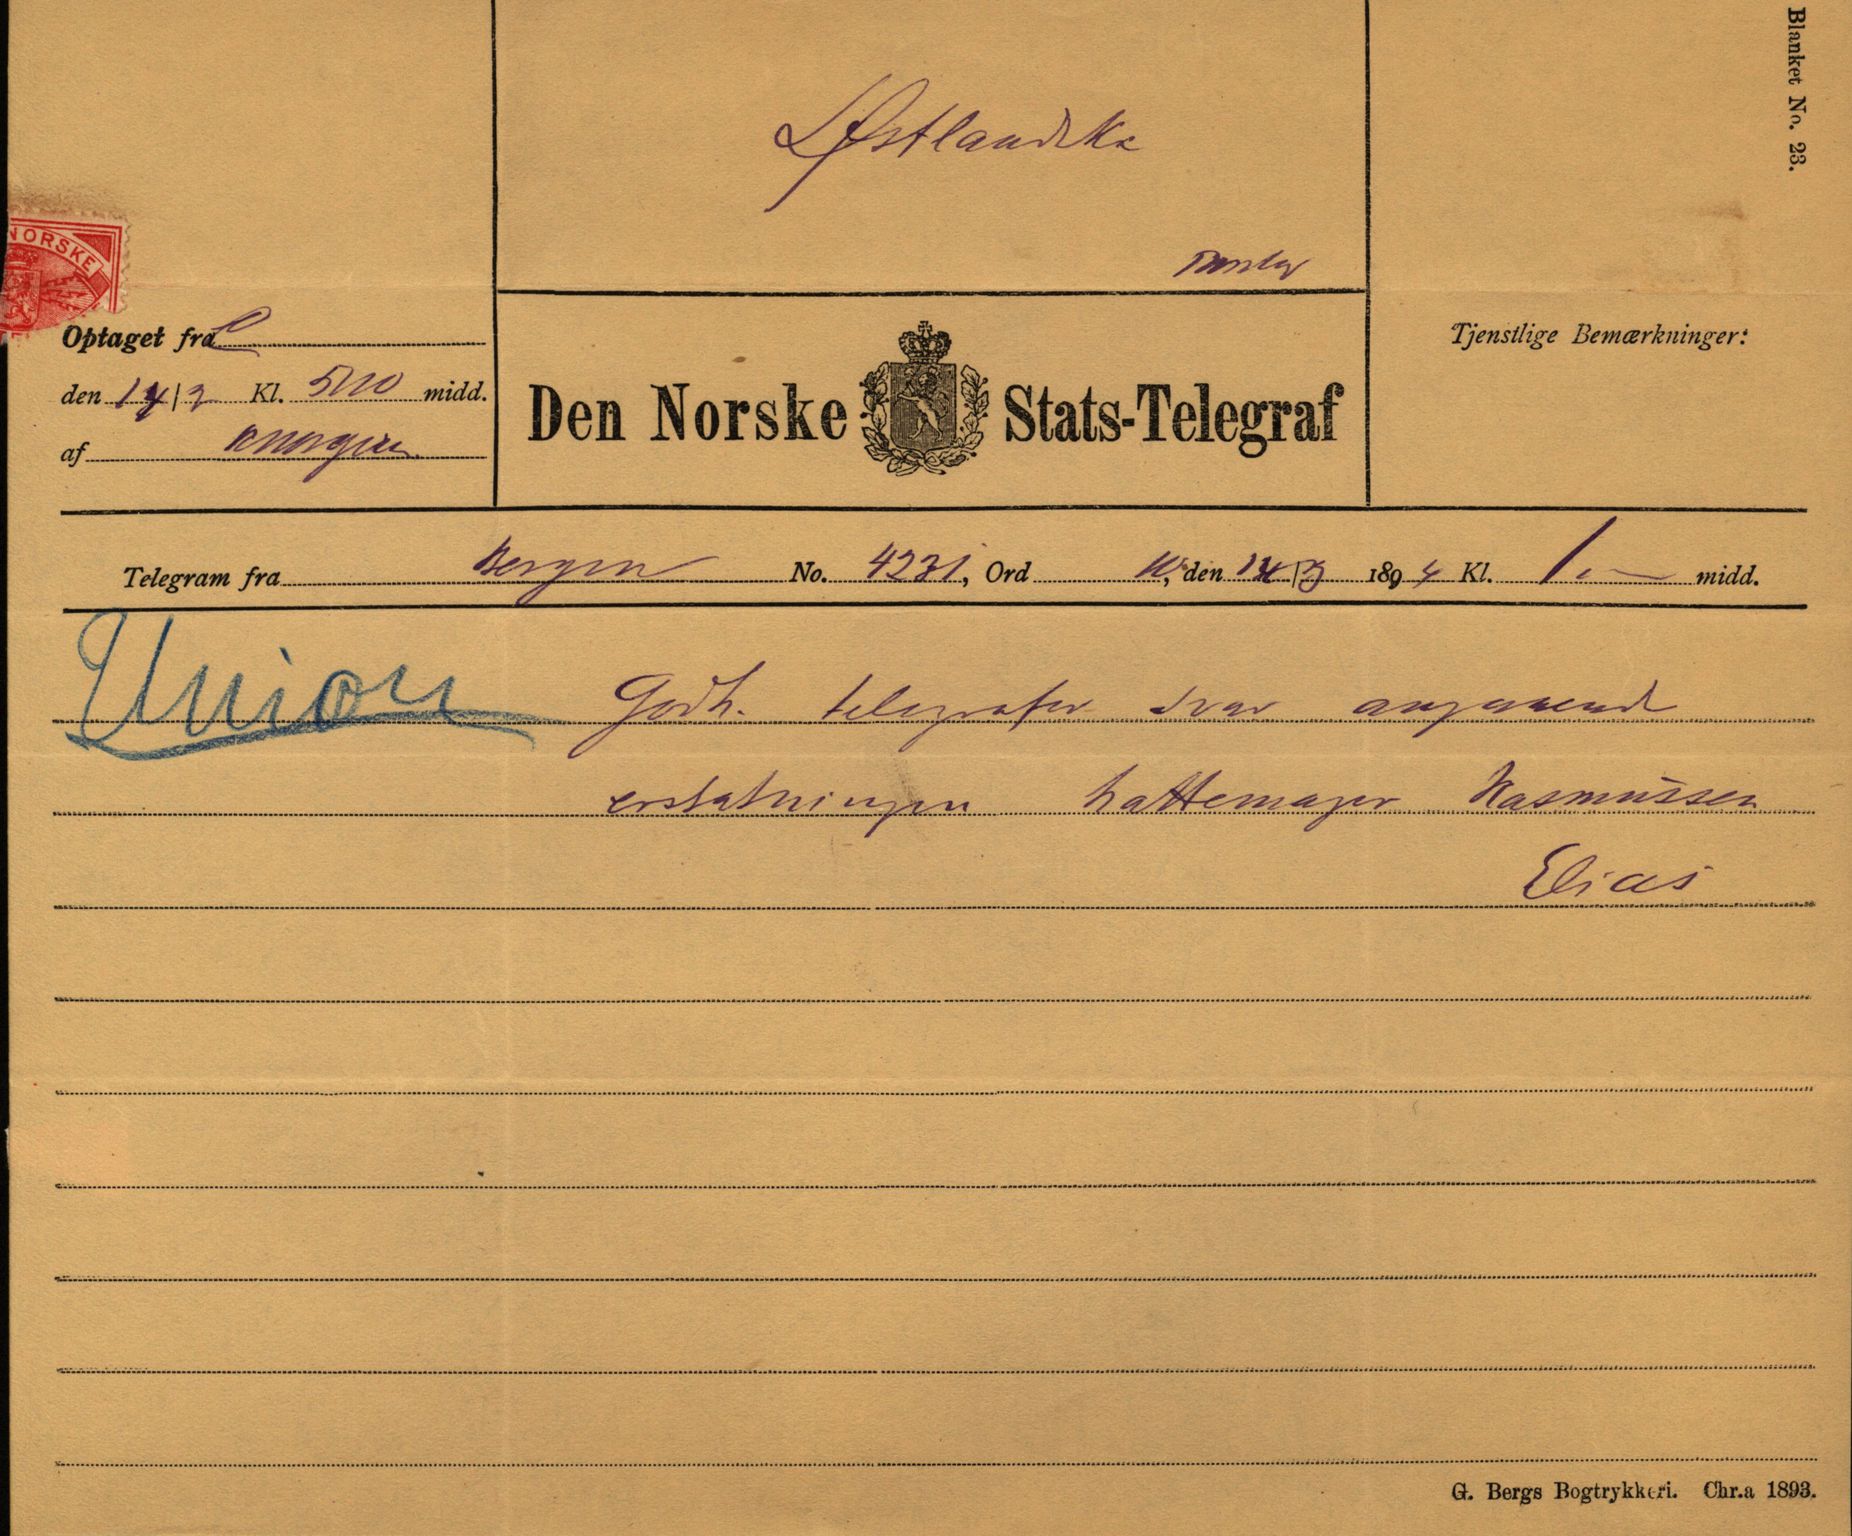 Blanket No. 23.
Østlandske
NORSKE
Optaget fra C
den 14/3 Kl. 510 midd.
af
Den Norske Stats-Telegraf
Tjenstlige Bemærkninger:
Telegram fra Bergen No. 4231, Ord 10, den 14/3 1894 Kl. 1 — midd.
Union
Godh. telegrafer svar angaaende
erstatningen hattemager Rasmussen
Elias
G. Bergs Bogtrykkeri. Chr.a 1893.